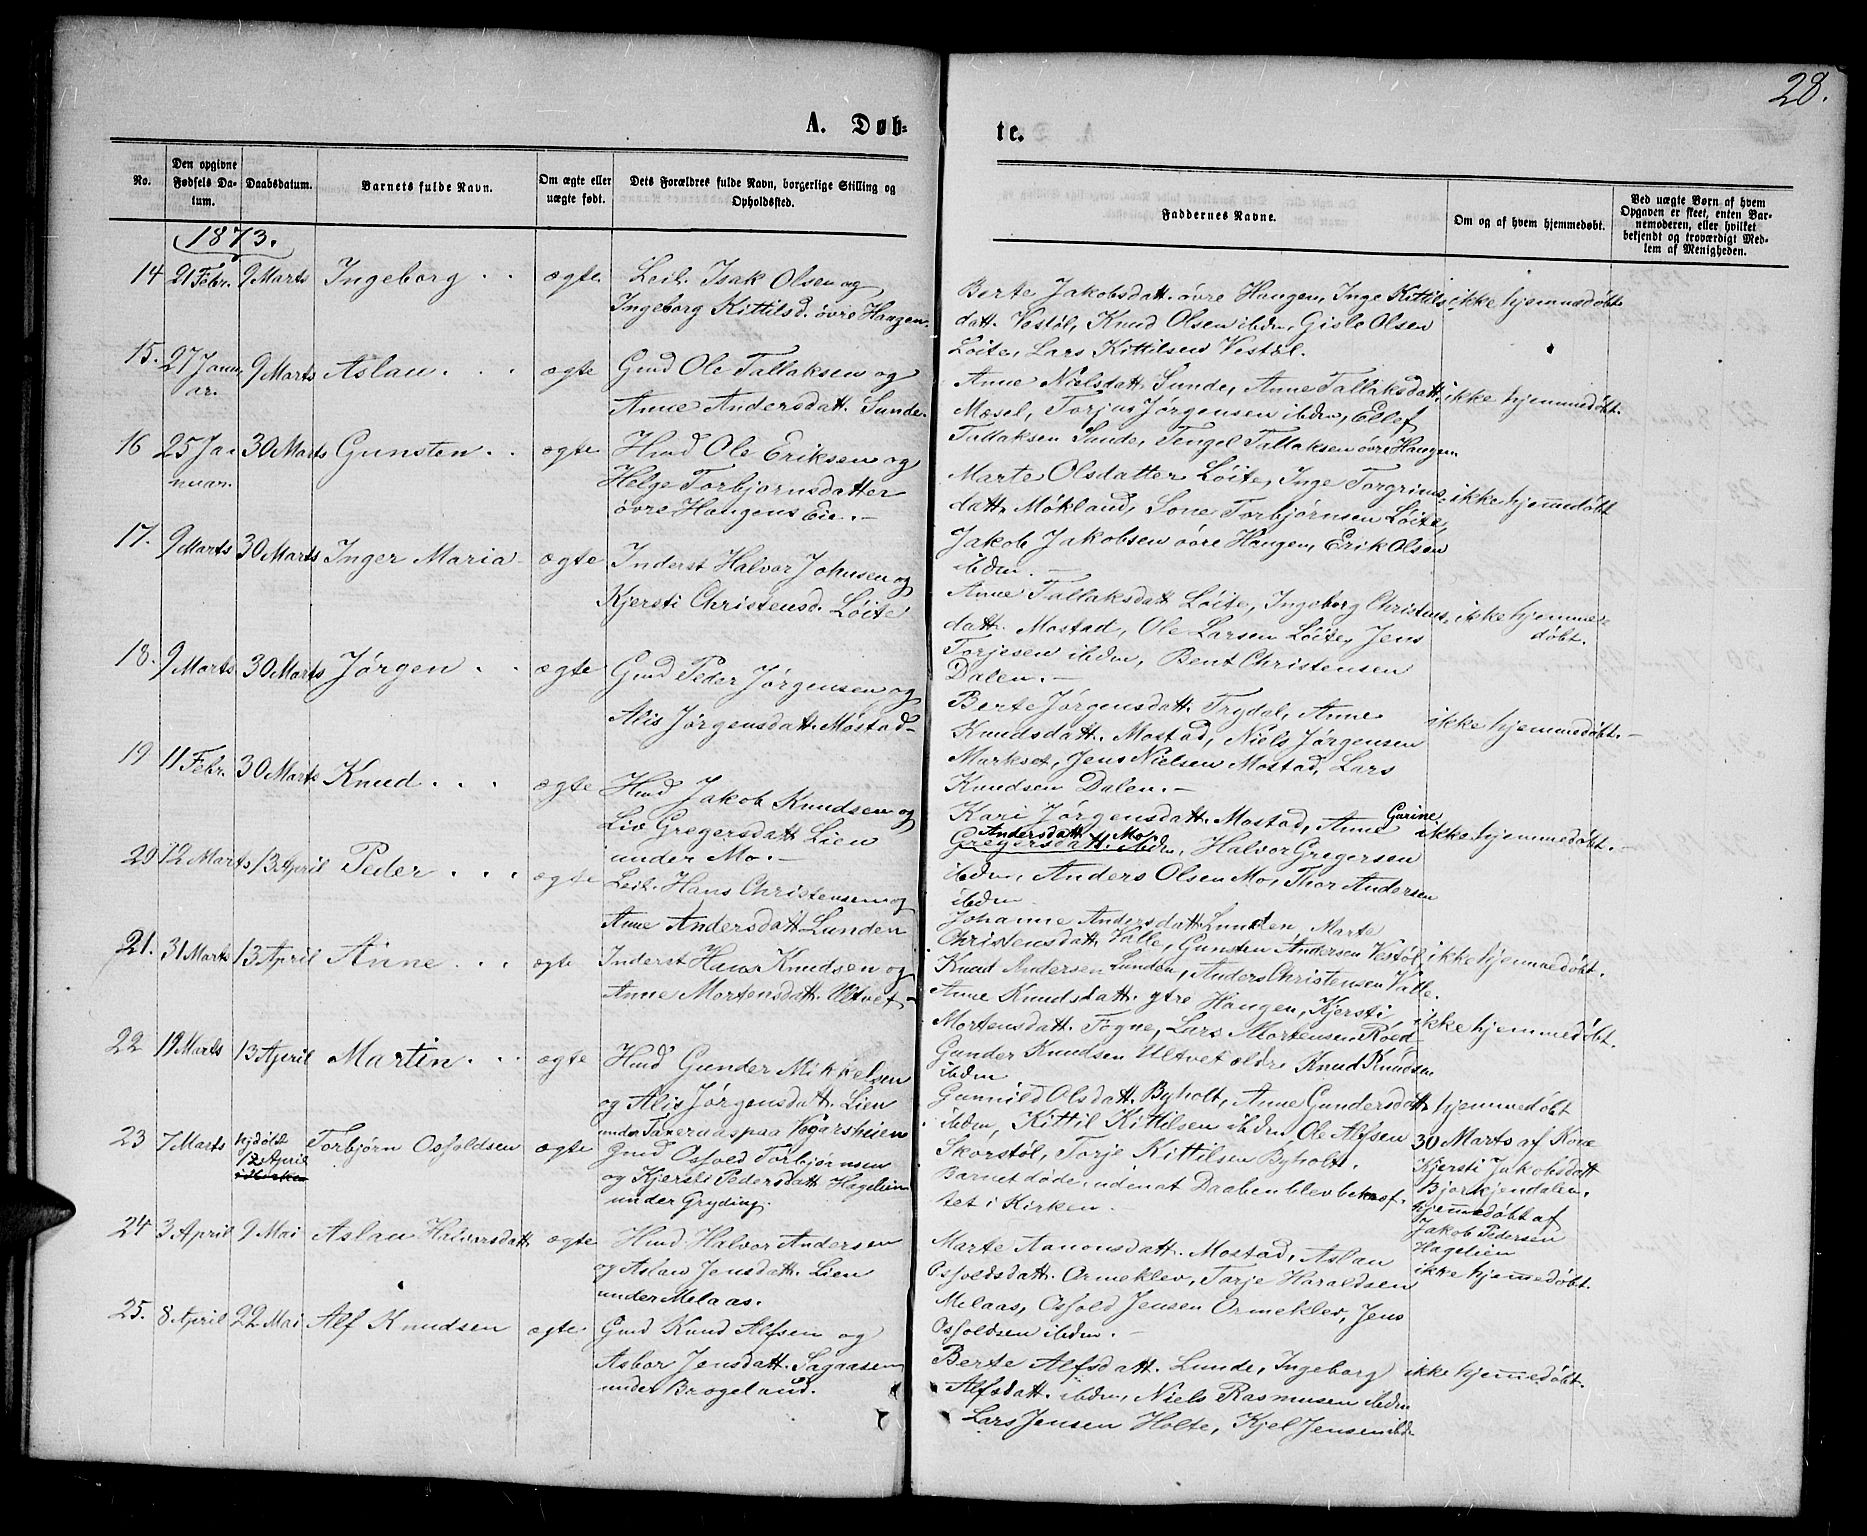 28.
A. Døb-
te.
No.
Den opgivne Fødsels Datum.
Daabsdatum.
Barnets fulde Navn.
Om ægte eller uægte født.
Dets Forældres fulde Navn, borgerlige Stilling og Opholdssted.
Faddernes Navne.
Om og af hvem hjemmedøbt.
Ved uægte Børn af hvem Opgaven er skeet, enten Barnemoderen, eller hvilket bekjendt og troværdigt Medlem af Menigheden.
1873.
14 21 Febr. 9 Marts Ingeborg ægte Leil. Isak Olsen og
Ingeborg Kittilsd. øvre Haugen.
15. 27 Janu 9 Marts Aslau ægte Gmd Ole Tallaksen og
ar. Anne Andersdatt. Sunde.
16 25 Ja- 30 Marts Gunsten ægte Hmd Ole Eriksen og
nuar. Helge Torbjørnsdatter
øvre Haugens Eie.
17. 9 Marts 30 Marts Inger Maria ægte Inderst Halvor Johnsen og
Kjersti Christensd. Løite
18. 9 Marts 30 Marts Jørgen ægte Gmd Peder Jørgensen og
Alis Jørgensdatt. Mostad
19 11 Febr. 30 Marts Knud ægte Hmd Jakob Knudsen og
Liv Gregersdatt Lien
under Mo.
20 12 Marts 13 April Peder ægte Leil. Hans Christensen og
Anne Andersdatt Lunden
21. 31 Marts 13 April Anne ægte Inderst Hans Knudsen og
Anne Mortensdatt. Ultvet
22 19 Marts 13 April Martin ægte Hmd Gunder Mikkelsen
og Alis Jørgensdatt. Lien
under paa Vegarsheien
23 7 Marts hjdøbt Torbjørn Osfoldsen ægte Gmd Osfold Torbjørnsen
12 April og Kjersti Pedersdatt Hagelien
i Kirken under Gryding.
24 3 April 9 Mai Aslau Halvorsdatt ægte Hmd Halvor Andersen
og Aslau Jensdatt. Lien
under Melaas.
25. 8 April 22 Mai Alf Knudsen ægte Gmd Knud Alfsen og
Asbor Jensdatt. Sagaasen
under Brogeland.
Berte Jakobsdatt. øvre Haugen, Inge Kittils- ikke hjemmedøbt
datt. Vestøl, Knud Olsen ibdm, Gisle Olsen
Løite, Lars Kittilsen Vestøl.
Anne Nielsdatt Sunde, Anne Tallaksdatt. ikke hjemmedøbt.
Mæsel, Torjus Jørgensen ibdm, Ellef
Tallaksen Sunde, Tengel Tallaksen øvre Haugen
Marte Olsdatter Løite, Inge Torgrims- ikke hjemmedøbt
datt. Møkland, Sone Torbjørnsen Løite,
Jakob Jakobsen øvre Haugen, Erik Olsen
ibdm.
Anne Tallaksdatt Løite, Ingeborg Christens- ikke hjemme-
datt. Mostad, Ole Larsen Løite, Jens døbt.
Torjesen ibdm, Bent Christensen
Dalen.
Berte Jørgensdatt. Trydal, Anne ikke hjemmedøbt.
Knudsdatt. Mostad, Niels Jørgensen
Markset, Jens Nielsen Mostad, Lars
Knudsen Dalen.
Kari Jørgensdatt. Mostad, Anne Garine ikke hjemmedøbt.
Andersdatt. Mo
Gregersdatt. ibdm, Halvor Gregersen
ibdm, Anders Olsen Mo, Thor Andersen
ibdm
Johanne Andersdatt Lunden, Marte
Christensdatt Valle, Gunsten Andersen Vestøl, ikke hjemmedøbt.
Knud Andersen Lunden, Anders Christensen Valle.
Anne Knudsdatt. ytre Haugen, Kjersti ikke hjemmedøbt.
Mortensdatt. Fogne, Lars Mortensen Røed
Gunder Knudsen Ultvet ældre Knud Knudsen
ibdm
Gunnild Olsdatt. Byholt, Anne Gundersdatt hjemmedøbt
ibdm, Kittil Kittilsen ibdm, Ole Alfsen 30 Marts af Kone
Skorstøl, Torje Kittilsen Byholt. Kjersti Jakobsdatt
Bjorkjendalen.
Barnet døde, uden at Daaben blev bekræf- hjemmedøbt af
tet i Kirken. Jakob Pedersen
Hagelien
Marte Aanonsdatt. Mostad, Aslau ikke hjemmedøbt.
Osfoldsdatt. Ormeklev, Torje Haraldsen
Melaas, Osfold Jensen Ormeklev, Jens
Osfoldsen ibdm.
Berte Alfsdatt. Lunde, Ingeborg ikke hjemmedøbt.
Alfsdatt. ibdm, Niels Rasmusen ibdm
Lars Jensen Holte, Kjel Jensen ibd